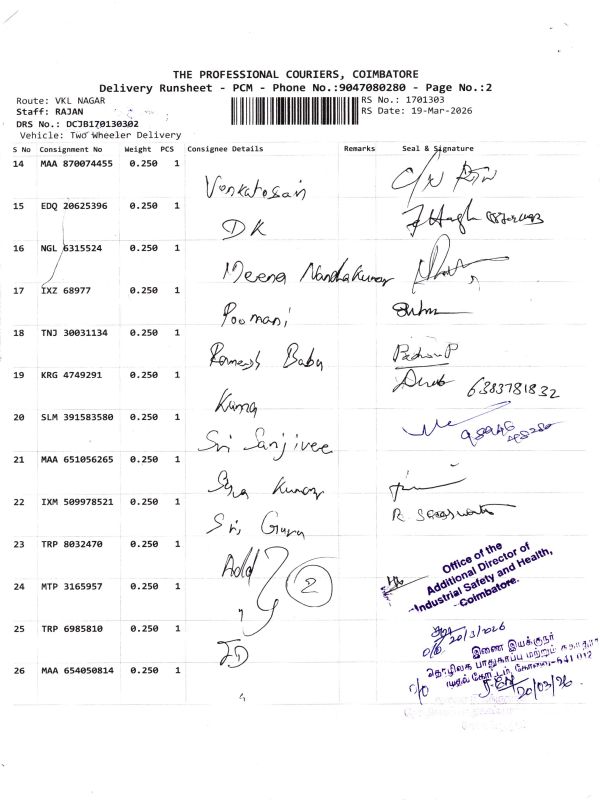 THE PROFESSIONAL COURIERS, COIMBATORE
Delivery Runsheet - PCM - Phone No.:9047080280 - Page No.:2
Route: VKL NAGAR
Staff: RAJAN
DRS No.: DCJB170130302
Vehicle: Two Wheeler Delivery
RS No.: 1701303
RS Date: 19-Mar-2026
S No Consignment No Weight PCS Consignee Details Remarks Seal & Signature
14 MAA 870074455 0.250 1
Venkatesan
15 EDQ 20625396 0.250 1
DK
16 NGL 6315524 0.250 1
Meena Nandhakumar
17 IXZ 68977 0.250 1
Poomani
18 TNJ 30031134 0.250 1
Ramesh Babu
19 KRG 4749291 0.250 1 6383781832
Kuma
20 SLM 391583580 0.250 1
Sri Sanjivee
21 MAA 651056265 0.250 1
Kumar
22 IXM 509978521 0.250 1 R Saraswathi
Sri Guru
23 TRP 8032470 0.250 1
Add 2
Office of the
Additional Director of
Industrial Safety and Health,
Coimbatore.
24 MTP 3165957 0.250 1
25 TRP 6985810 0.250 1 20/3/2026
JD
இணை இயக்குநர்
தொழிலக பாதுகாப்பு மற்றும்
கோவை-641 012
26 MAA 654050814 0.250 1 20/03/26